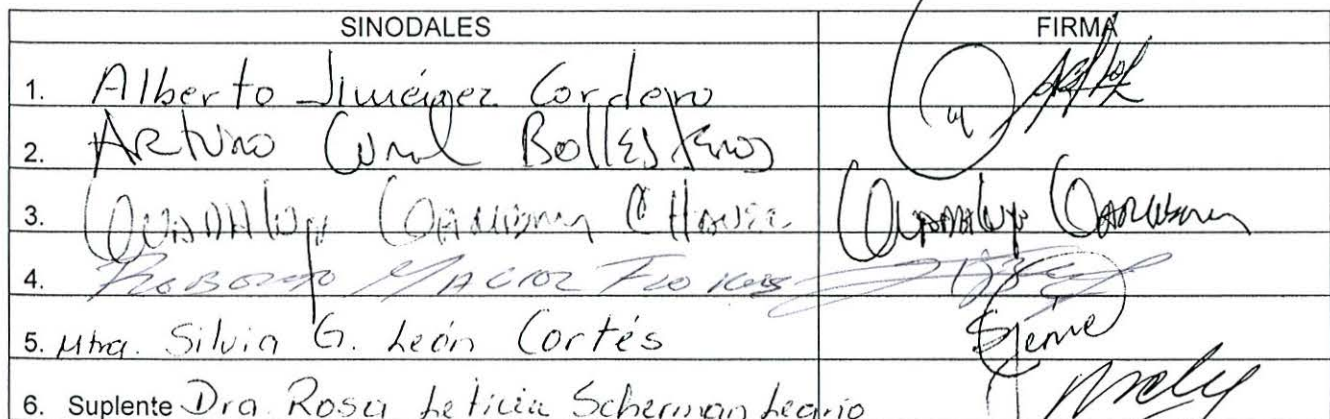 SINODALES FIRMA
1. Alberto Jiménez Cordero
2. ARTURO Curiel Ballesteros
3. GUADALUPE GARIBAY CHAVEZ GUADALUPE GARIBAY
4. ROBERTO MACIAZ FLORES
5. Mtra. Silvia G. León Cortés
6. Suplente Dra. Rosa Leticia Scherman Leaño